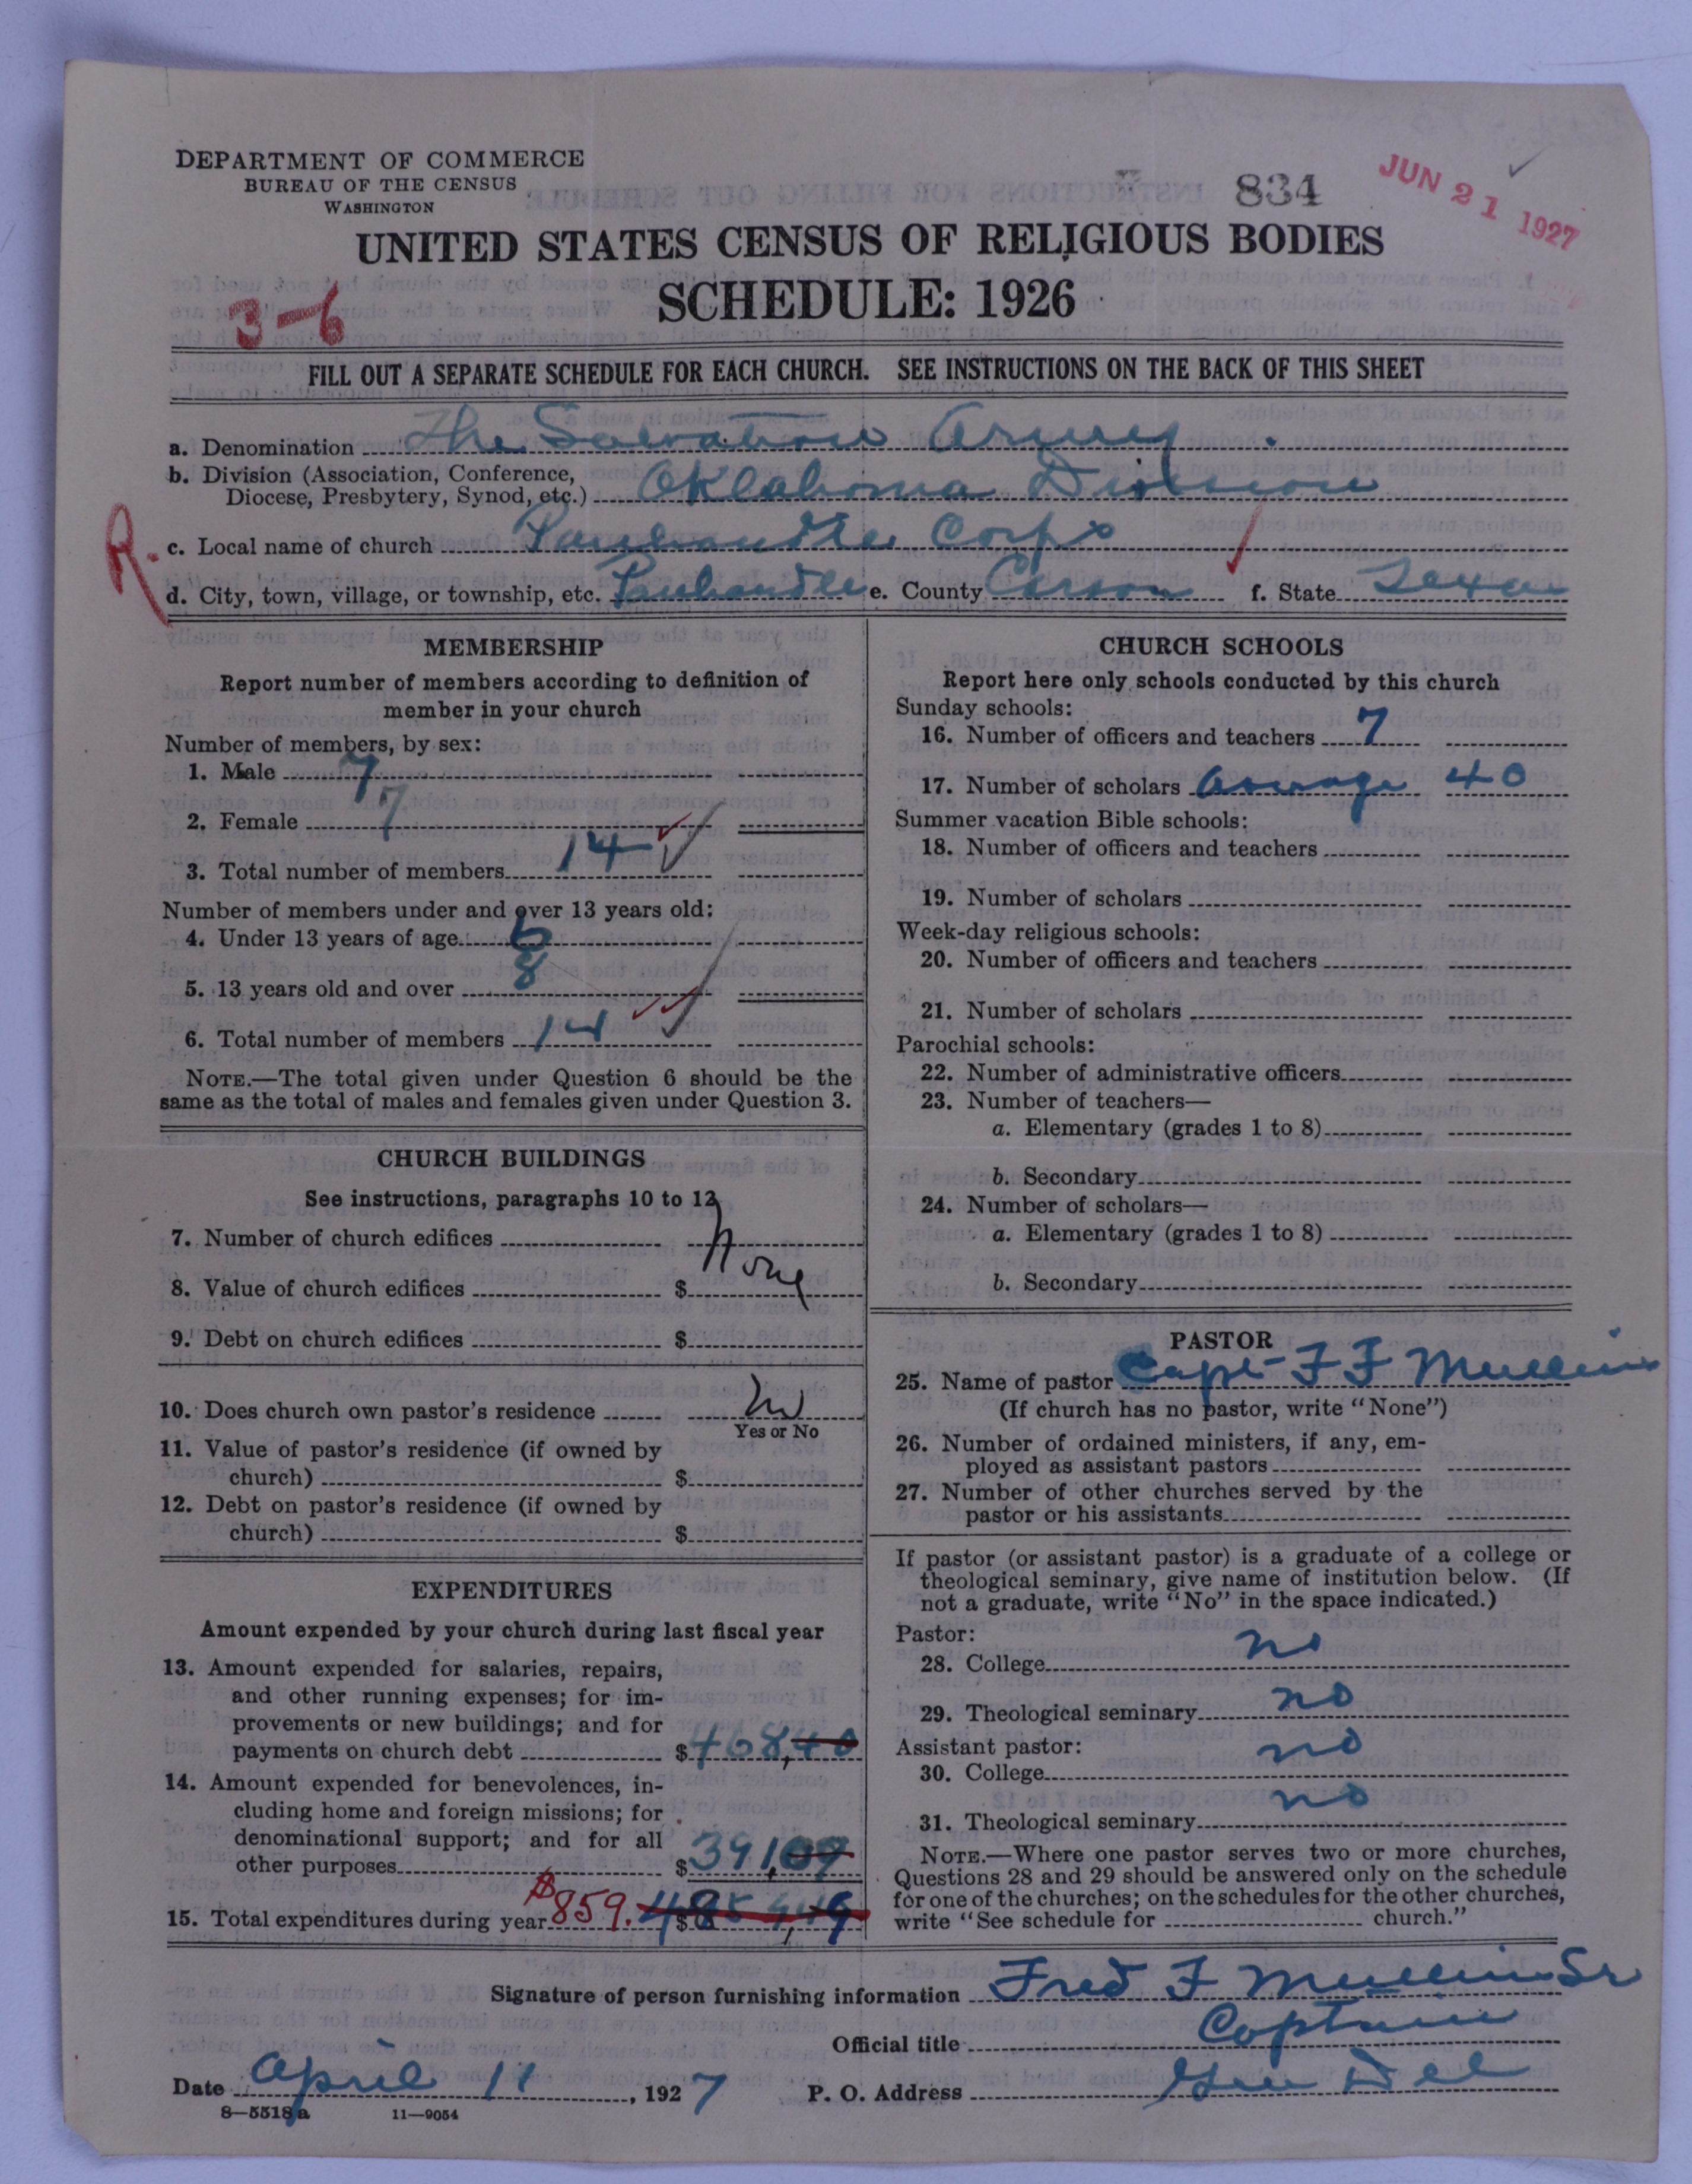 DEPARTMENT OF COMMERCE
BUREAU OF THE CENSUS
WASHINGTON
834
JUN 21 1927
UNITED STATES CENSUS OF RELIGIOUS BODIES
SCHEDULE: 1926
3-6
FILL OUT A SEPARATE SCHEDULE FOR EACH CHURCH. SEE INSTRUCTIONS ON THE BACK OF THIS SHEET
a. Denomination The Salvation Army
b. Division (Association, Conference,
Diocese, Presbytery, Synod, etc.) Oklahoma Division
R.
c. Local name of church Panhandle Corps
d. City, town, village, or township, etc. Panhandle e. County Carson f. State Texas
MEMBERSHIP
Report number of members according to definition of
member in your church
Number of members, by sex:
1. Male 7
2. Female 7
3. Total number of members 14
Number of members under and over 13 years old:
4. Under 13 years of age 6
5. 13 years old and over 8
6. Total number of members 14
NOTE.—The total given under Question 6 should be the
same as the total of males and females given under Question 3.
CHURCH BUILDINGS
See instructions, paragraphs 10 to 12
7. Number of church edifices None
8. Value of church edifices $
9. Debt on church edifices $
10. Does church own pastor's residence No
Yes or No
11. Value of pastor's residence (if owned by
church) $
12. Debt on pastor's residence (if owned by
church) $
EXPENDITURES
Amount expended by your church during last fiscal year
13. Amount expended for salaries, repairs,
and other running expenses; for im-
provements or new buildings; and for
payments on church debt $468,40
14. Amount expended for benevolences, in-
cluding home and foreign missions; for
denominational support; and for all
other purposes $391,09
15. Total expenditures during year $859. $
CHURCH SCHOOLS
Report here only schools conducted by this church
Sunday schools:
16. Number of officers and teachers 7
17. Number of scholars Average 40
Summer vacation Bible schools:
18. Number of officers and teachers
19. Number of scholars
Week-day religious schools:
20. Number of officers and teachers
21. Number of scholars
Parochial schools:
22. Number of administrative officers
23. Number of teachers—
a. Elementary (grades 1 to 8)
b. Secondary
24. Number of scholars—
a. Elementary (grades 1 to 8)
b. Secondary
PASTOR
25. Name of pastor Capt F F Mullins
(If church has no pastor, write "None")
26. Number of ordained ministers, if any, em-
ployed as assistant pastors
27. Number of other churches served by the
pastor or his assistants
If pastor (or assistant pastor) is a graduate of a college or
theological seminary, give name of institution below. (If
not a graduate, write "No" in the space indicated.)
Pastor:
28. College no
29. Theological seminary no
Assistant pastor:
30. College no
31. Theological seminary no
NOTE.—Where one pastor serves two or more churches,
Questions 28 and 29 should be answered only on the schedule
for one of the churches; on the schedules for the other churches,
write "See schedule for church."
Signature of person furnishing information Fred F Mullins Sr
Official title Captain
Date April 11, 1927 P. O. Address Gen Del
8—5518a 11—9054